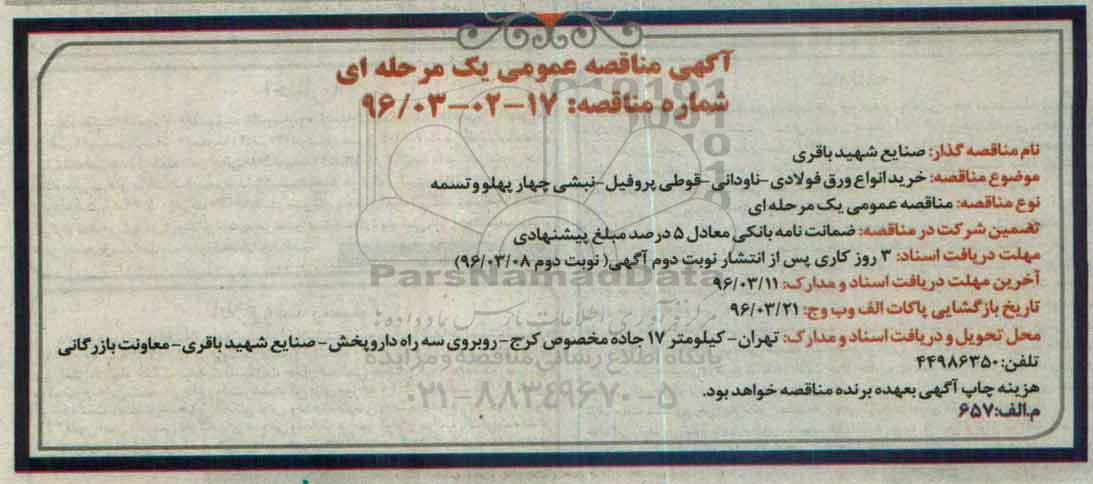 آگهی مناقصه عمومی یک مرحله ای
شماره مناقصه: ۱۷-۰۲-۹۶/۰۳
نام مناقصه گذار: صنایع شهید باقری
موضوع مناقصه: خرید انواع ورق فولادی-ناودانی-قوطی پروفیل-نبشی چهار پهلو و تسمه
نوع مناقصه: مناقصه عمومی یک مرحله ای
تضمین شرکت در مناقصه: ضمانت نامه بانکی معادل ۵ درصد مبلغ پیشنهادی
مهلت دریافت اسناد: ۳ روز کاری پس از انتشار نوبت دوم آگهی( نوبت دوم ۹۶/۰۳/۰۸)
ParsNamadData
آخرین مهلت دریافت اسناد و مدارک: ۹۶/۰۳/۱۱
تاریخ بازگشایی پاکات الف وب وج: ۹۶/۰۳/۲۱
محل تحویل و دریافت اسناد و مدارک: تهران- کیلومتر ۱۷ جاده مخصوص کرج- روبروی سه راه داروپخش- صنایع شهید باقری- معاونت بازرگانی
پایگاه اطلاع رسانی مناقصه و مزایده
تلفن: ۴۴۹۸۶۳۵۰
هزینه چاپ آگهی بعهده برنده مناقصه خواهد بود.
۰۲۱-۸۸۳۴۹۶۷۰-۵
م.الف: ۶۵۷